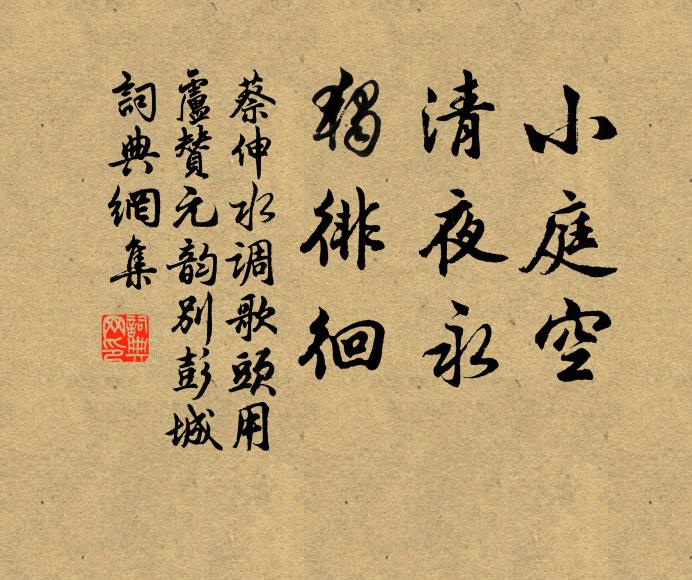 小庭空
清夜永
獨徘徊
蔡伸水调歌頭用
盧贊元韵别彭城
詞典網集
詞典网印